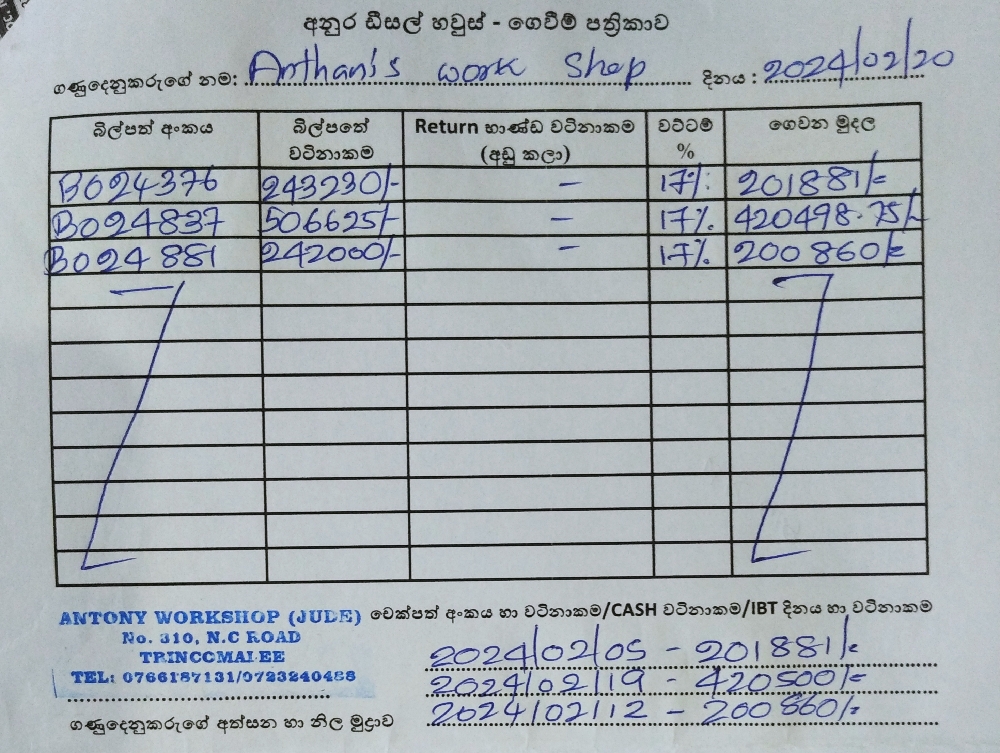 අනුර ඩීසල් හවුස් - ගෙවීම් පත්‍රිකාව
ගණුදෙනුකරුගේ නම: Anthani's work Shop දිනය : 2024/02/20
බිල්පත් අංකය බිල්පතේ වටිනාකම Return භාණ්ඩ වටිනාකම (අඩු කලා) වට්ටම් % ගෙවන මුදල
B024376 243230/- - 17% 201881/=
B024837 506625/- - 17% 420498.75/=
B024881 242000/- - 17% 200860/=
ANTONY WORKSHOP (JUDE) චෙක්පත් අංකය හා වටිනාකම/CASH වටිනාකම/IBT දිනය හා වටිනාකම
No. 310, N.C ROAD
TRINCOMALEE
TEL: 0766187131/0723240488
2024/02/05 - 201881/=
2024/02/19 - 420500/=
2024/02/12 - 200860/=
ගණුදෙනුකරුගේ අත්සන හා නිල මුද්‍රාව